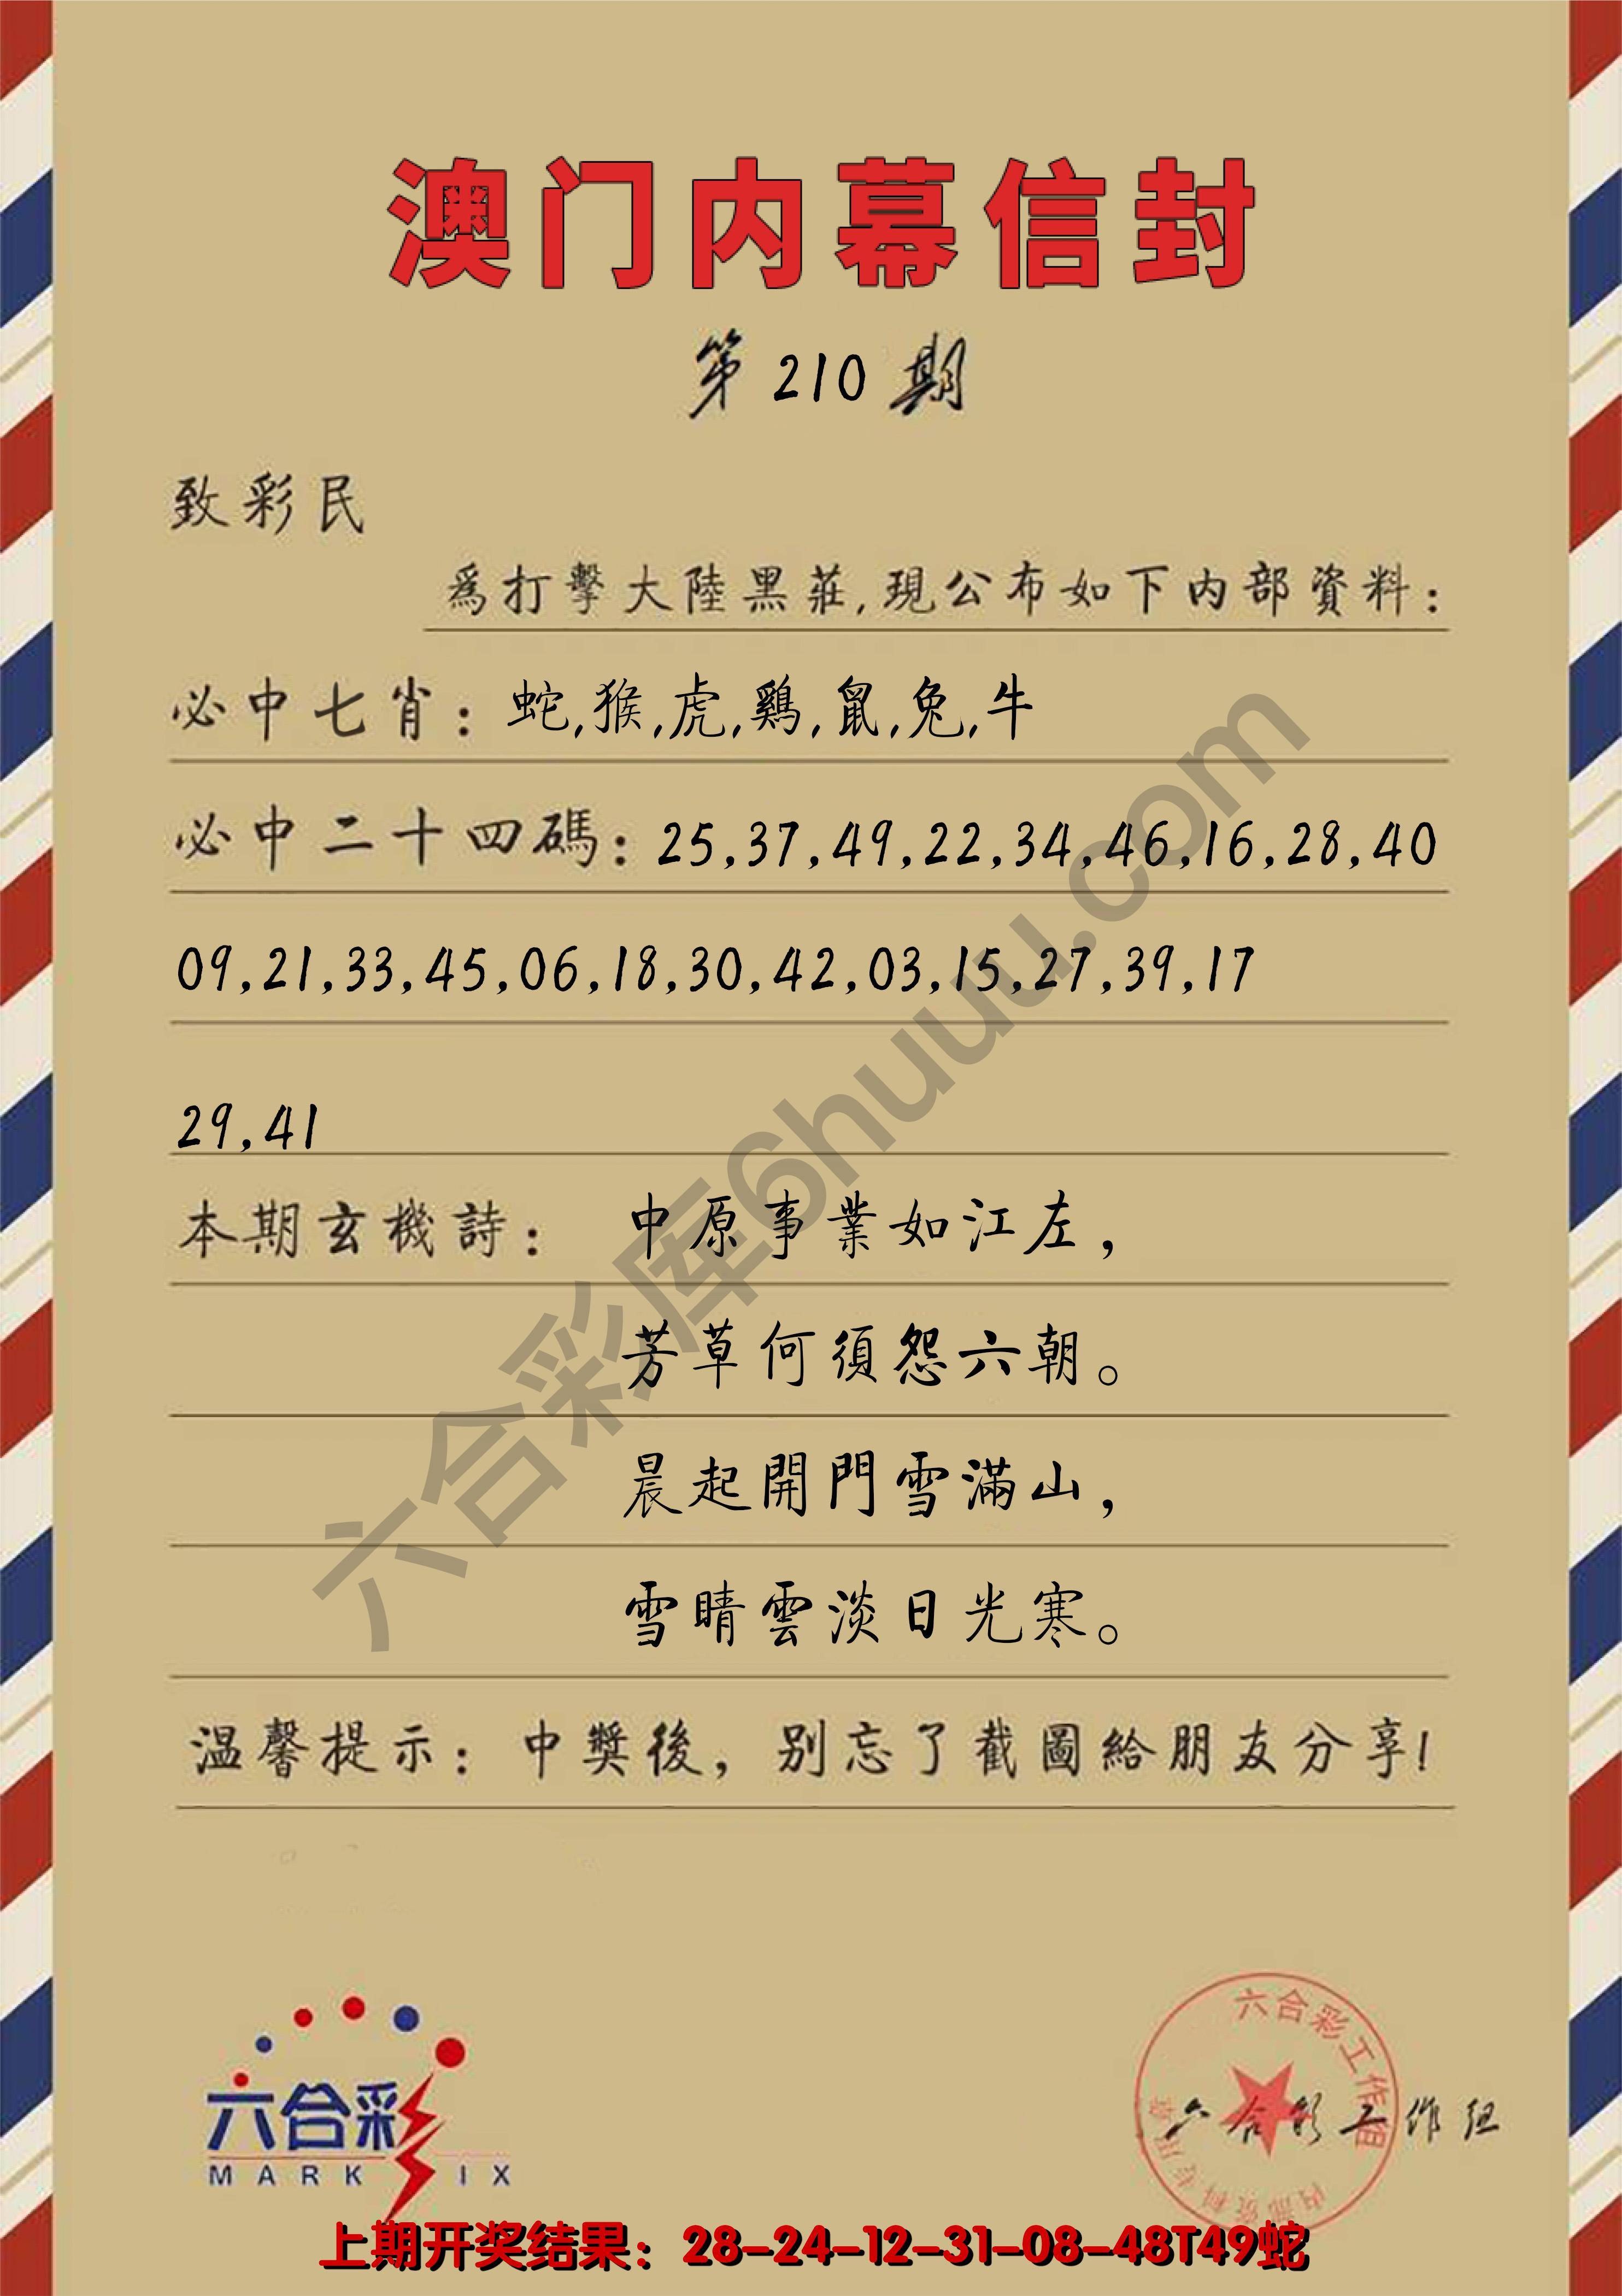 澳门内幕信封
第210期
致彩民
爲打擊大陸黑莊,現公布如下内部資料:
必中七肖:蛇,猴,虎,鷄,鼠,兔,牛
必中二十四碼:25,37,49,22,34,46,16,28,40
09,21,33,45,06,18,30,42,03,15,27,39,17
29,41
本期玄機詩: 中原事業如江左,
芳草何須怨六朝。
晨起開門雪滿山,
雪晴雲淡日光寒。
温馨提示:中獎後,别忘了截圖給朋友分享!
六合彩库6huuu.com
六合彩
MARK SIX
六合彩工作组
内部资料专用章
六合彩工作组
上期开奖结果:28-24-12-31-08-48T49蛇